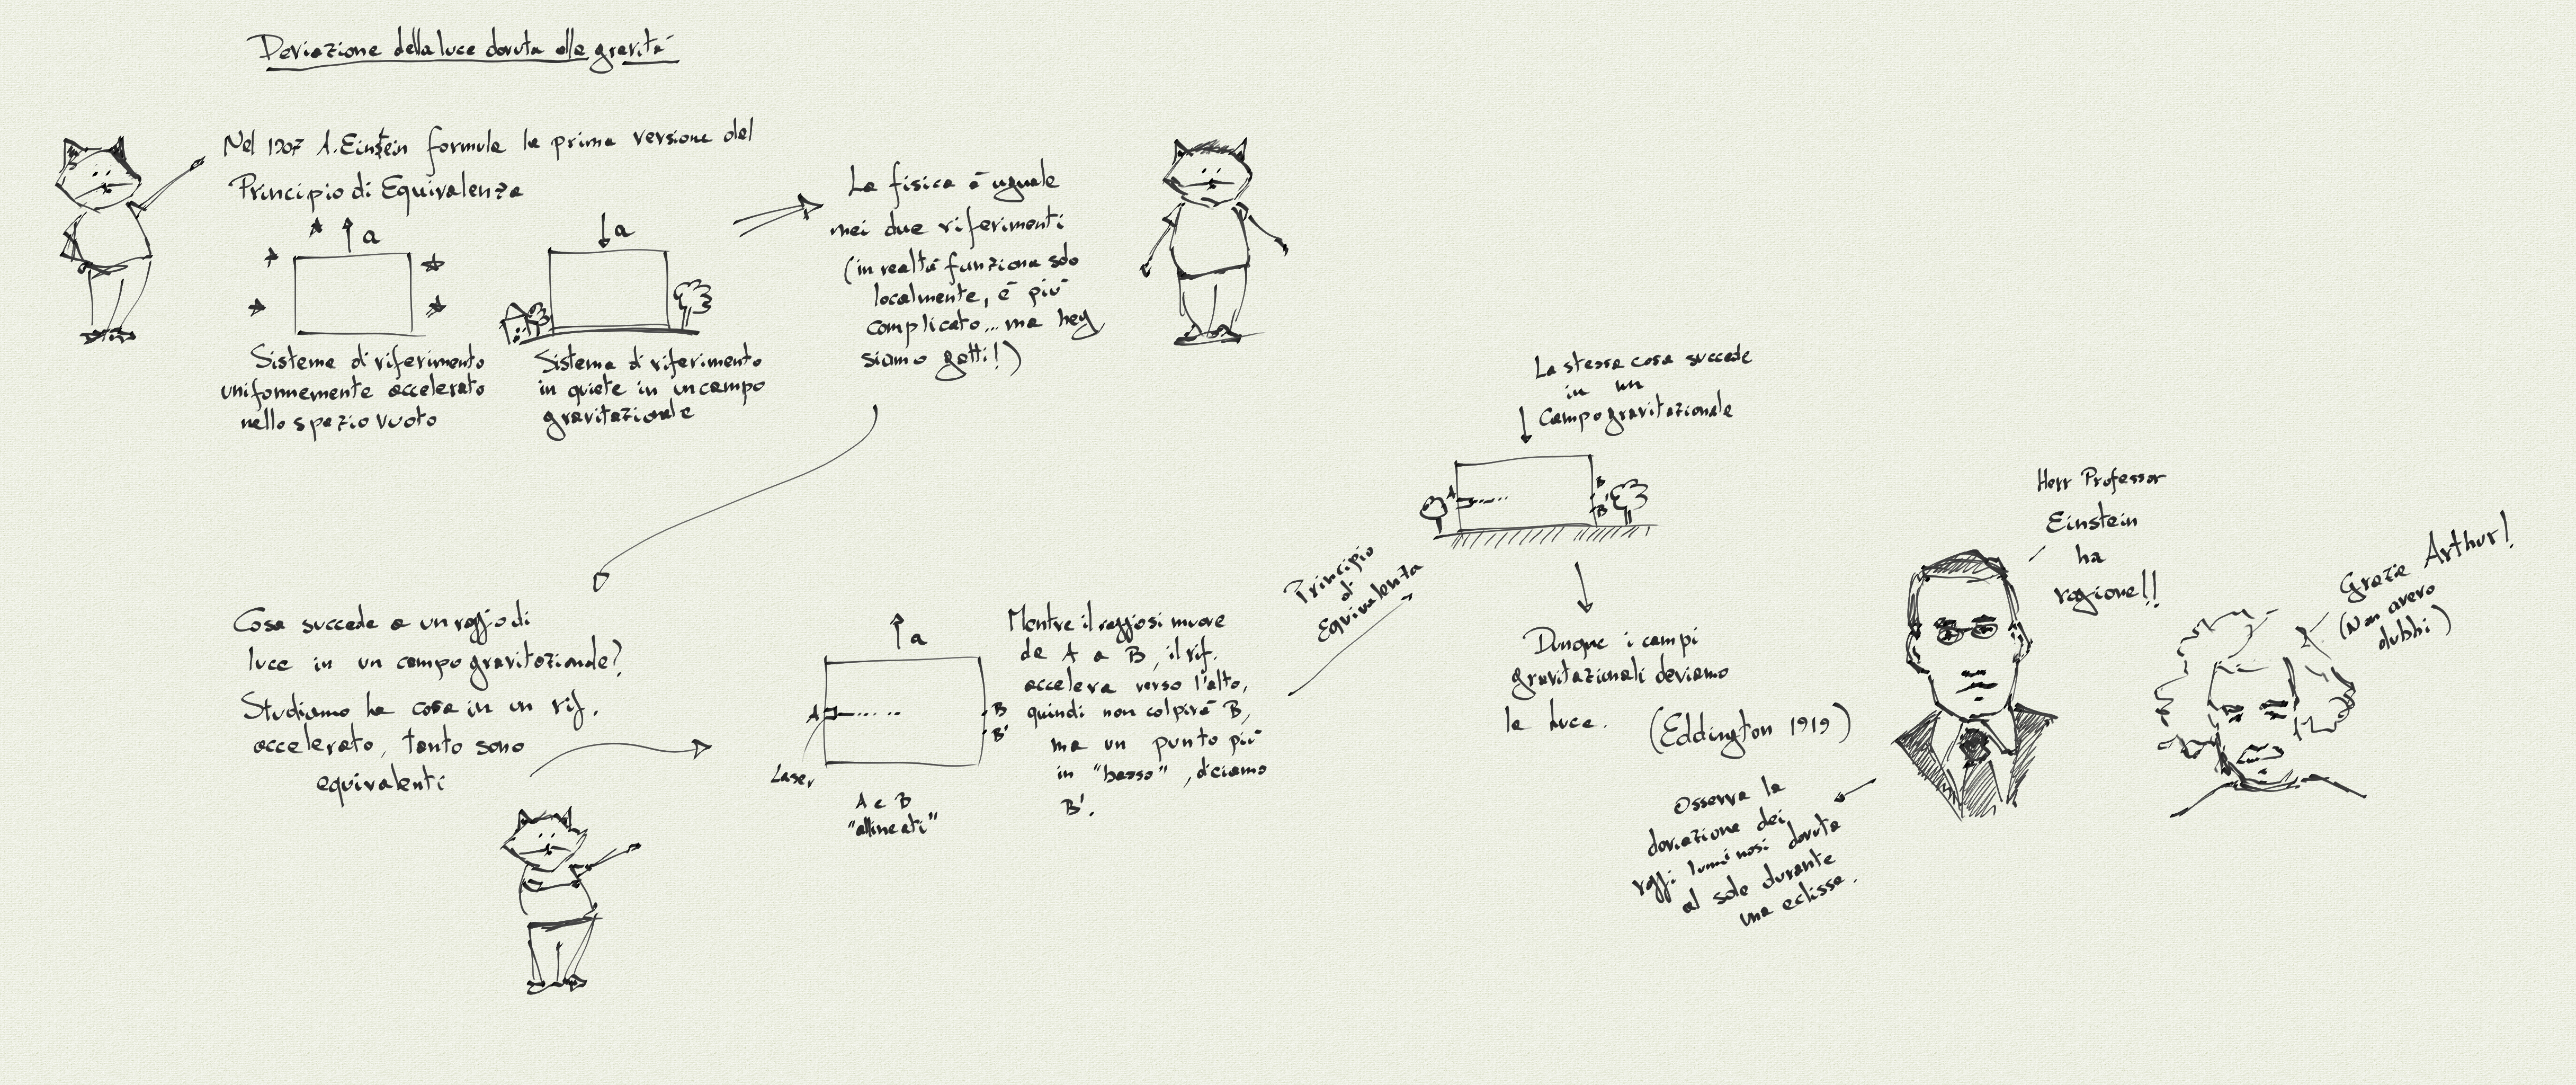 Deviazione della luce dovuta alla gravità
Nel 1907 A. Einstein formula la prima versione del
Principio di Equivalenza
a
Sistema di riferimento
uniformemente accelerato
nello spazio vuoto
a
Sistema di riferimento
in quiete in un campo
gravitazionale
La fisica è uguale
nei due riferimenti
(in realtà funziona solo
localmente, è più
complicato... ma hey,
siamo gatti!)
Cosa succede a un raggio di
luce in un campo gravitazionale?
Studiamo la cosa in un rif.
accelerato, tanto sono
equivalenti
a
A
B
B'
Laser
A e B
"allineati"
Mentre il raggio si muove
da A a B, il rif.
accelera verso l'alto,
quindi non colpirà B,
ma un punto più
in "basso", diciamo
B'.
Principio
di
Equivalenza
La stessa cosa succede
in un
Campo gravitazionale
A
B
B'
Dunque i campi
gravitazionali deviano
la luce.
(Eddington 1919)
Osserva la
deviazione dei
raggi luminosi dovuta
al sole durante
una eclisse.
Herr Professor
Einstein
ha
ragione!!
Grazie Arthur!
(Non avevo
dubbi)